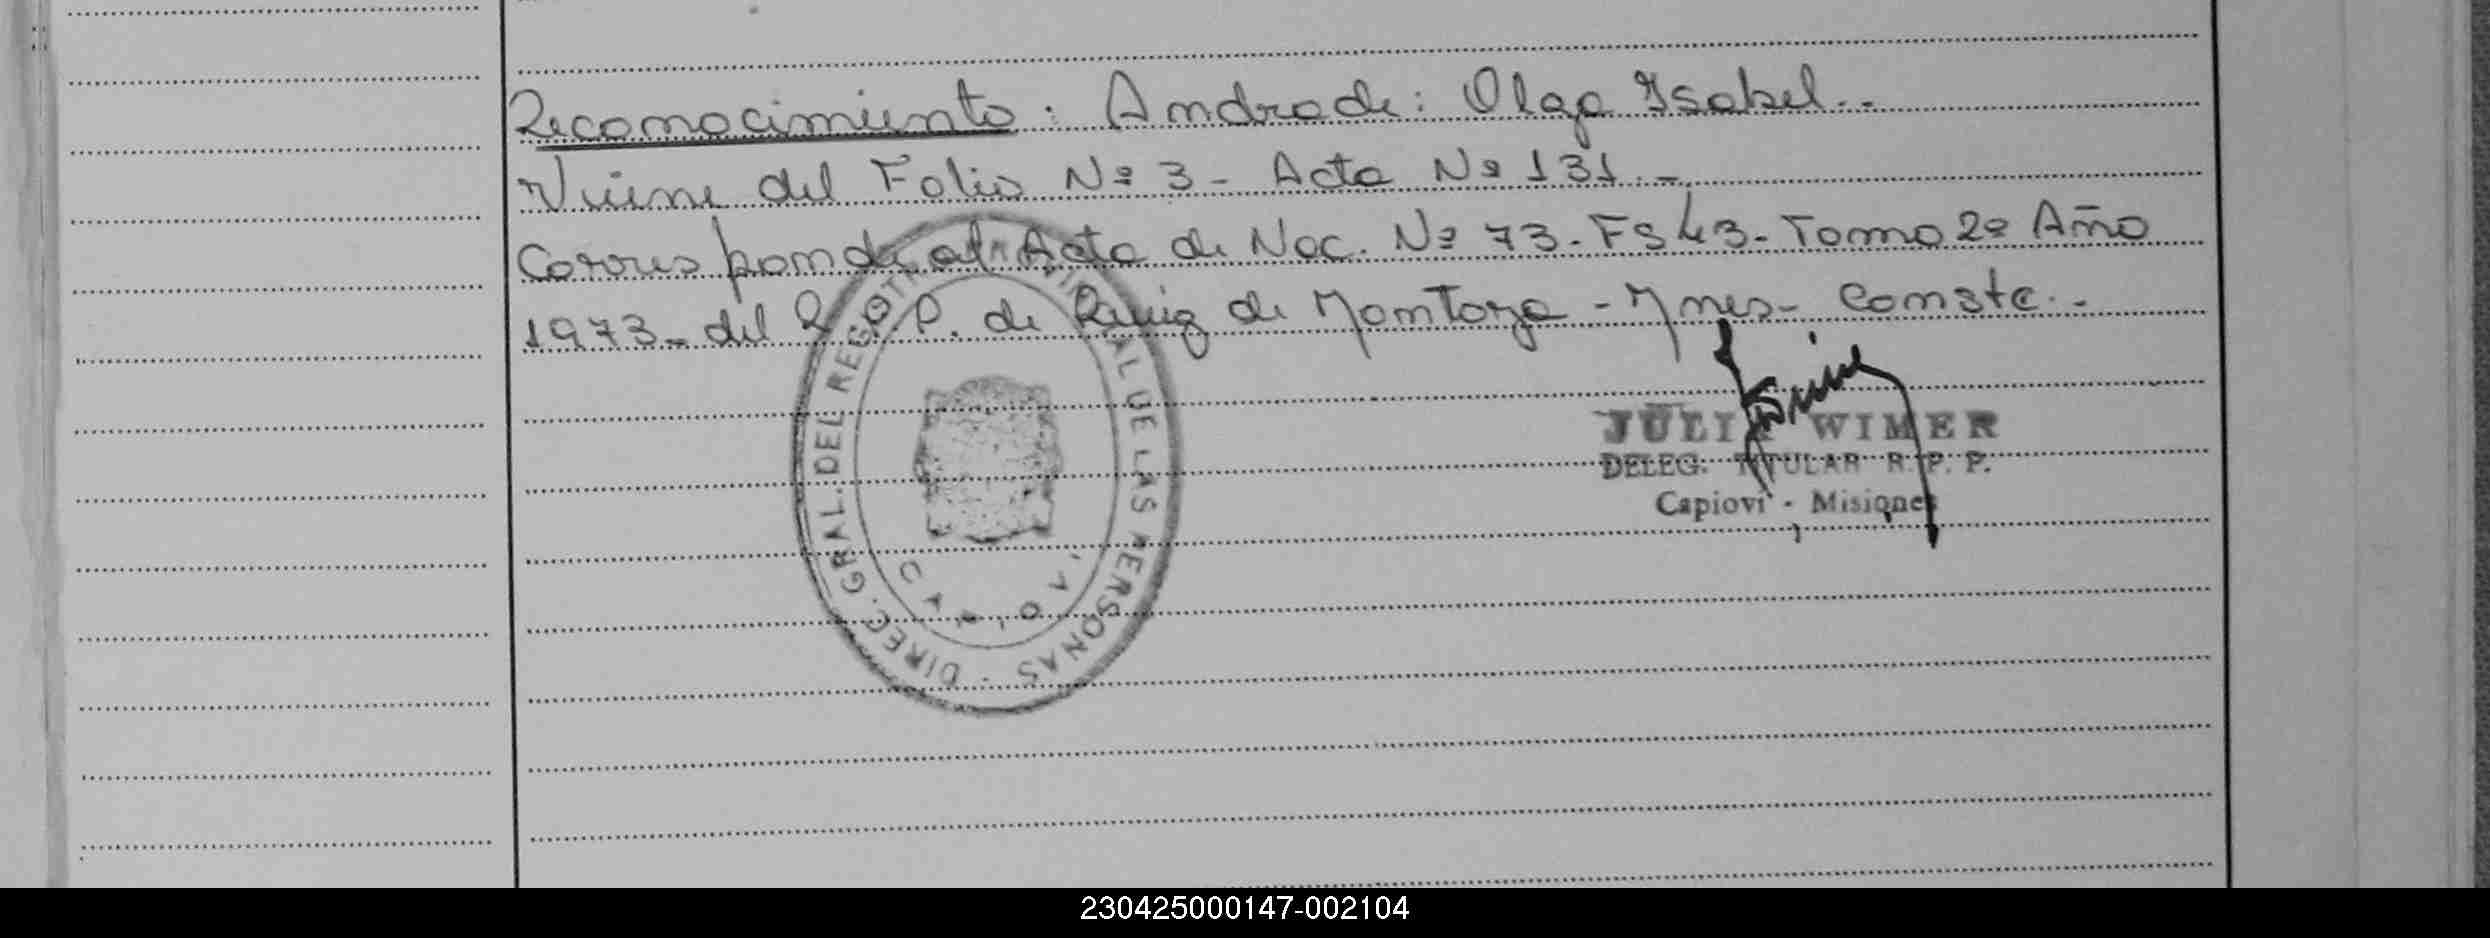 Reconocimiento: Andrade: Olga Isabel.-
Viene del Folio Nº 3 - Acta Nº 131.-
Corresponde al Acta de Nac. Nº 73 - Fs 43 - Tomo 2º Año
1973 - del R.P. de Ruiz de Montoya - Mnes - Conste.-
JULIA WIMER
DELEG. TITULAR R. P. P.
Capioví - Misiones
DIREC. GRAL. DEL REG. DE LAS PERSONAS
CAPIOVI
230425000147-002104